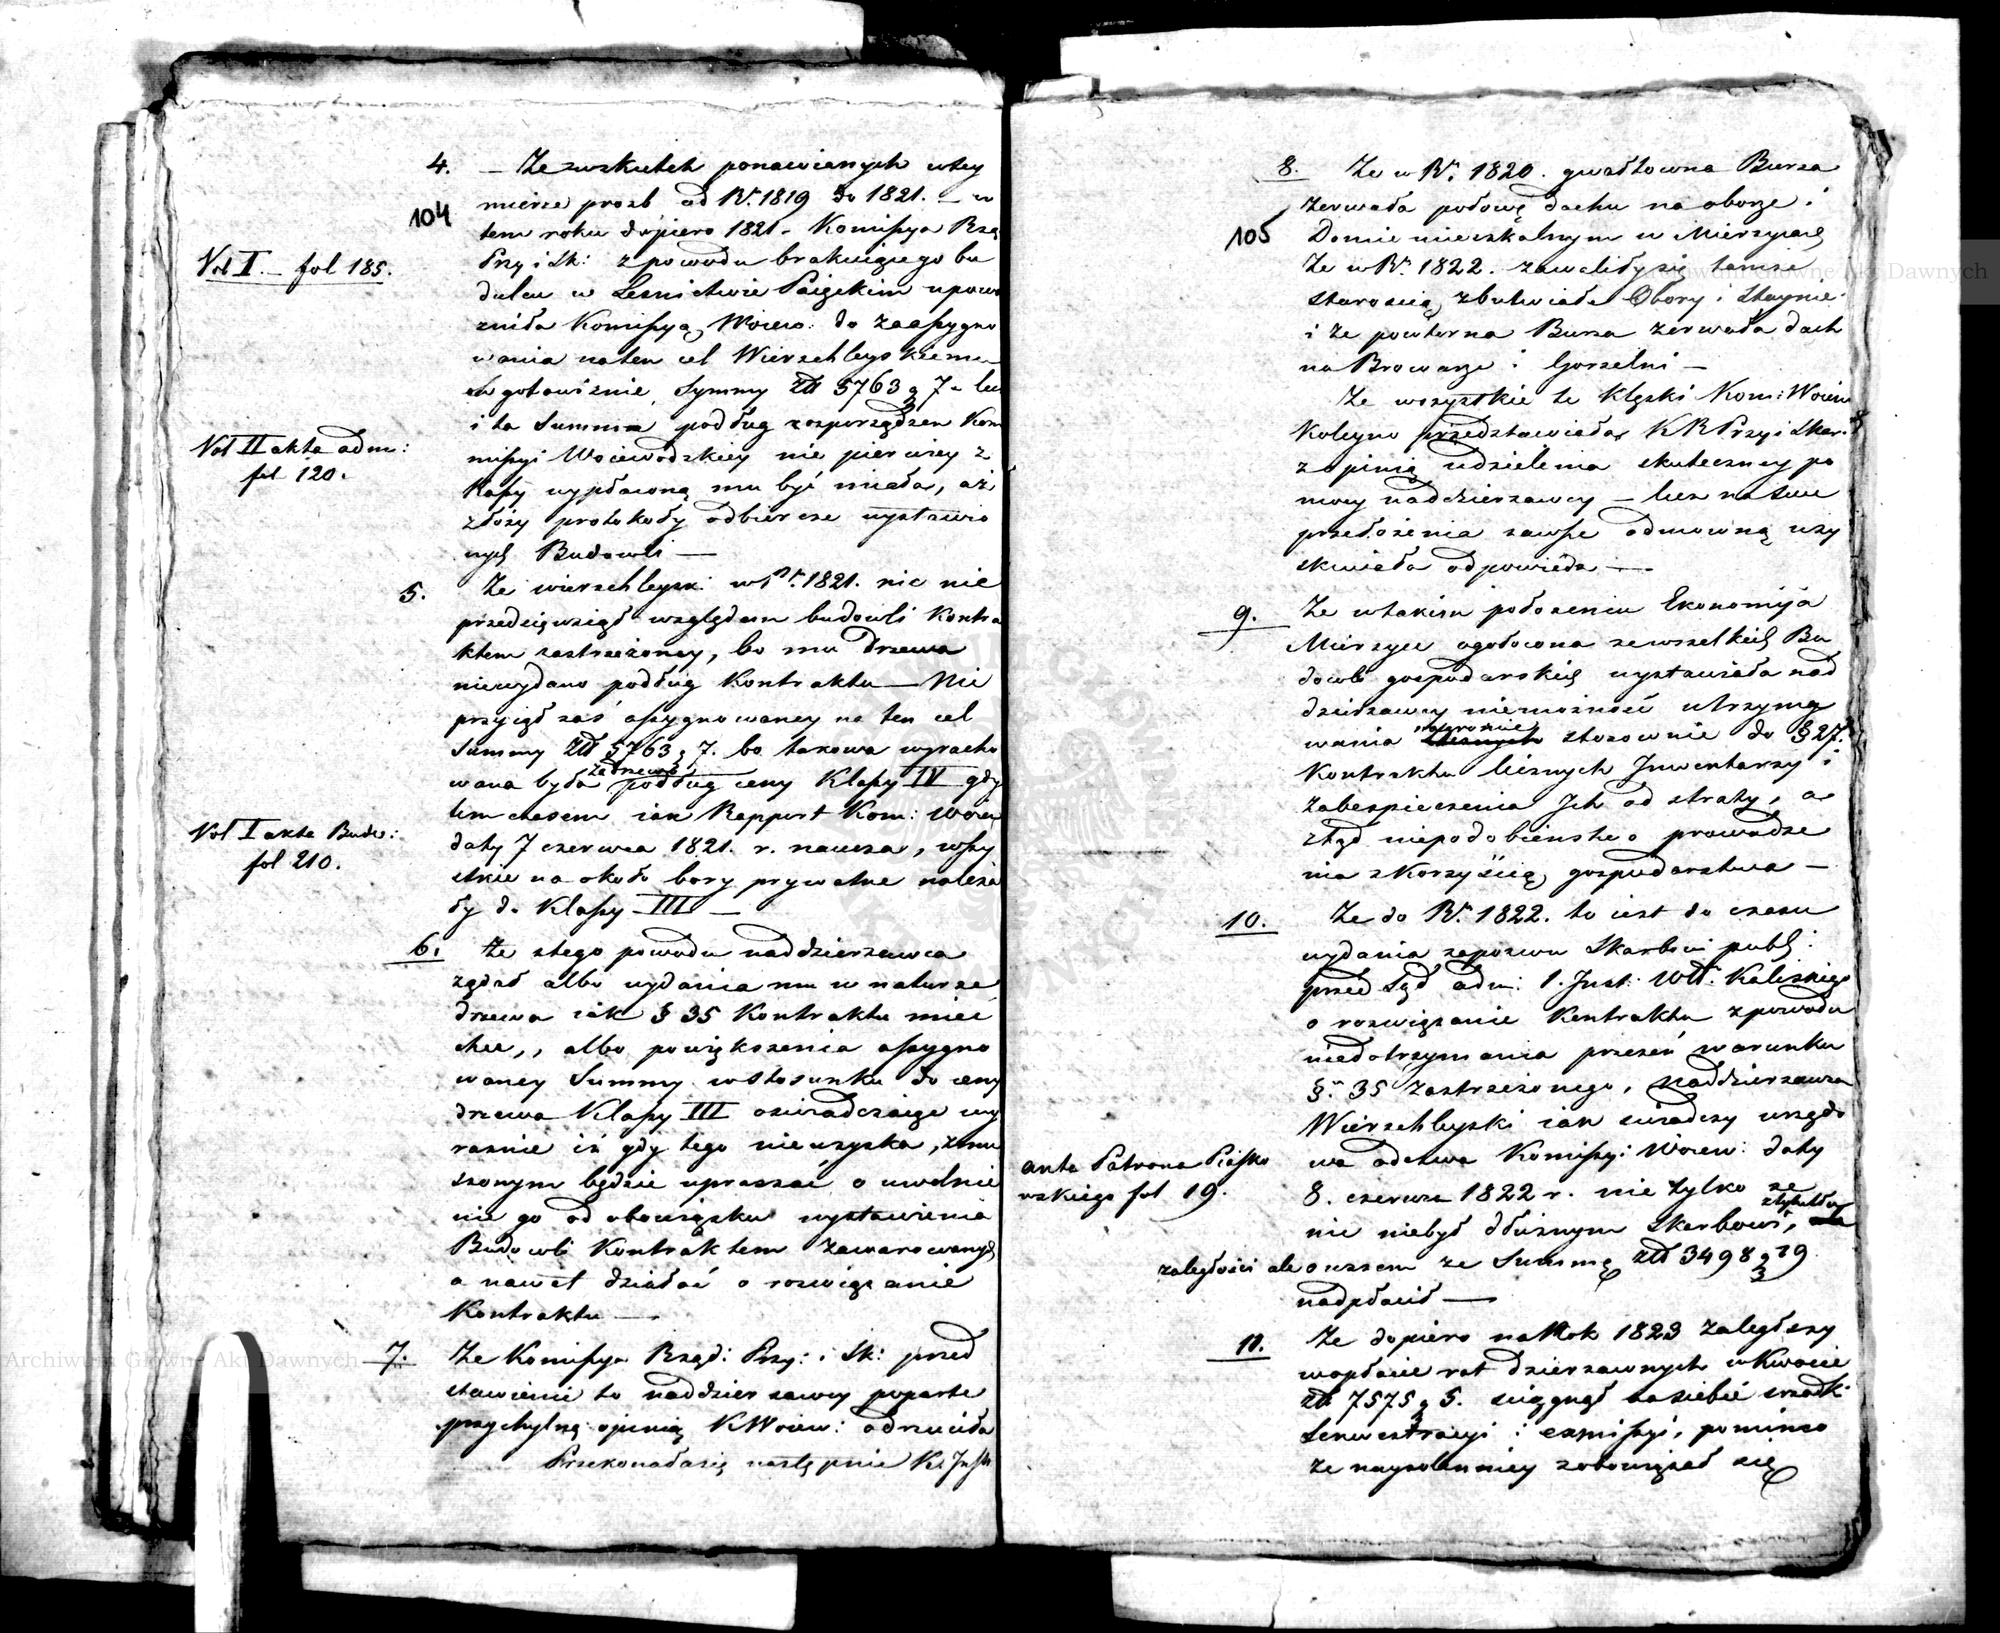 4. — Że zwskutek ponawianych w tey
104
mierze prozb od R. 1819 do 1821. — w
tem roku dopiero 1821 - Komissya Rzą
Vol I. — fol 185.
Przy i Sk: z powodu brakuiącego bu
dulcu w Lesnictwie upowa
zniła Komissyą Woiew: do zaassygno
wania na ten cel Wierzchleyskiemu
w gotowiznie Summy Złł 5763 g 7 - lecz
i ta Summa podług rozporządzen Kom
Vol II akta adm:
fol 120.
missyi Woiewodzkiey nie pierwiey z
Kassy wypłaconą mu być miała, aż
złoży protokoły odbiercze wystawio
nych Budowli —
5. Że wierzchleysk: w R. 1821. nic nie
przedsięwziął względem budowli Kontra
ktem zastrzeżoney, bo mu drzewa
niewydano podług Kontraktu — Nie
przyiął zaś assygnowaney na ten cel
Summy Złł 5763 g 7. bo takowa wyracho
za drzewo
wana była podług ceny Klassy IV gdy
tem czasem iak Rapport Kom: Woiew
Vol I akta Budo:
fol 210.
daty 7 czerwca 1821. r. naucza, wszy
stkie na około bory prywatne należa
ły do Klassy III —
6. Że z tego powodu naddzierzawca
żądał albo wydania mu w naturze
drzewa iak § 35 Kontraktu mieć
chce, albo powiększenia assygno
waney Summy w stosunku do ceny
drzewa Klassy III oswiadczaiąc wy
raznie iż gdy tego nie uzyska, zmu
szonym będzie upraszać o uwolnie
nie go od obowiązku wystawienia
Budowli Kontraktem zawarowanych
a nawet działać o rozwiązanie
Kontraktu —
7. Że Komissya Rząd: Przy: i Sk: przed
stawienie to naddzierzawcy poparte
przychylną opinią K Woiew: odrzuciła
Przekonała się następnie
8. Że w R. 1820. gwałtowna Burza
zerwała połowę dachu na oborze i
105
Domie mieszkalnym w Mierzycach
Że w R. 1822. zawaliły się tamże
starością zbutwiałe Obory i Staynie
i że powtorna Burza zerwała dach
na Browarze i Gorzelni —
Że wszystkie te Klęski Kom: Woiew
Koleyno przedstawiała K R Przy i Skar.
z opinią udzielenia skuteczney po
mocy naddzierzawcy — lecz na swe
przełożenia zawsze odmowną uzy
skiwała odpowiedz —
9. Że w takim położeniu Ekonomija
Mierzyce ogołocona ze wszelkich Bu
dowli gospodarskich wystawiała nad
dzierzawcę niemożność utrzymy
wania stosownie do § 27.
Kontraktu licznych Inwentarzy i
zabezpieczenia Ich od straty, a
ztąd niepodobieństwo prowadze
nia z Korzyścią gospodarstwa —
10. Że do R. 1822. to iest do czasu
wydania zapozwu Skarbowi publ:
przed Sąd adm: 1. Inst: Wtt. Kaliskiego
o rozwiązanie Kontraktu z powodu
niedotrzymania przezeń warunku
§. 35 zastrzeżonego, Naddzierzawca
Wierzchleyski iak swiadczy urzędo
Akta Patrona Piasko
wskiego fol 19.
wa odezwa Komissyi Woiew: daty
8. czerwca 1822 r. nie tylko że
z tytułów
nic niebył dłużnym Skarbowi,
zaległości ale owszem że Summę Złł 3498 g 29
3
nadpłacił —
11. Że dopiero na Rok 1823 zaległszy
w opłacie rat dzierzawnych w Kwocie
Złł 7575 g 5. sciągnął na siebie srodki
Sekwestracyi i exmissyi, pomimo
że naysolenniey zobowiązał się